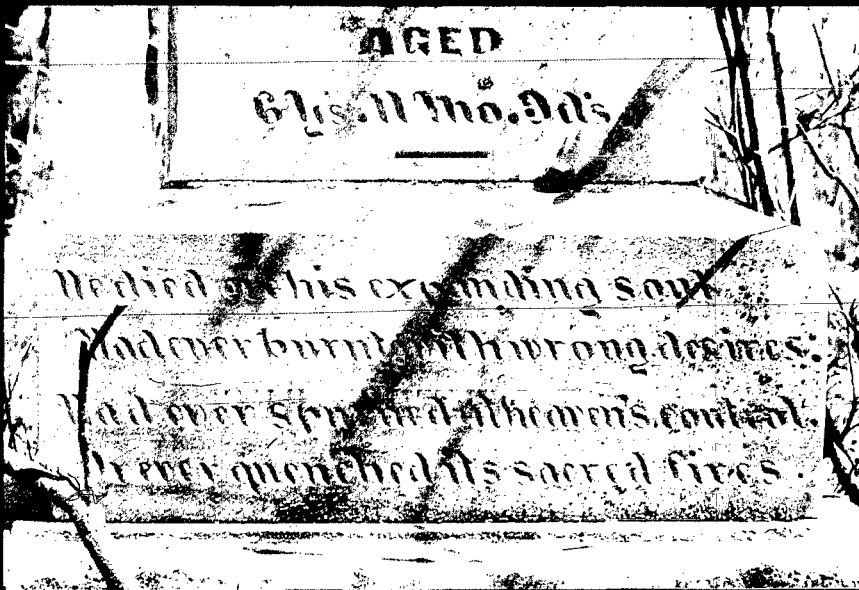 AGED
6 ys. 11 mo. 9 d's
He died e'er his expanding soul
Had ever burnt with wrong desires.
Had ever spurned at heaven's control.
Or ever quenched its sacred fires.